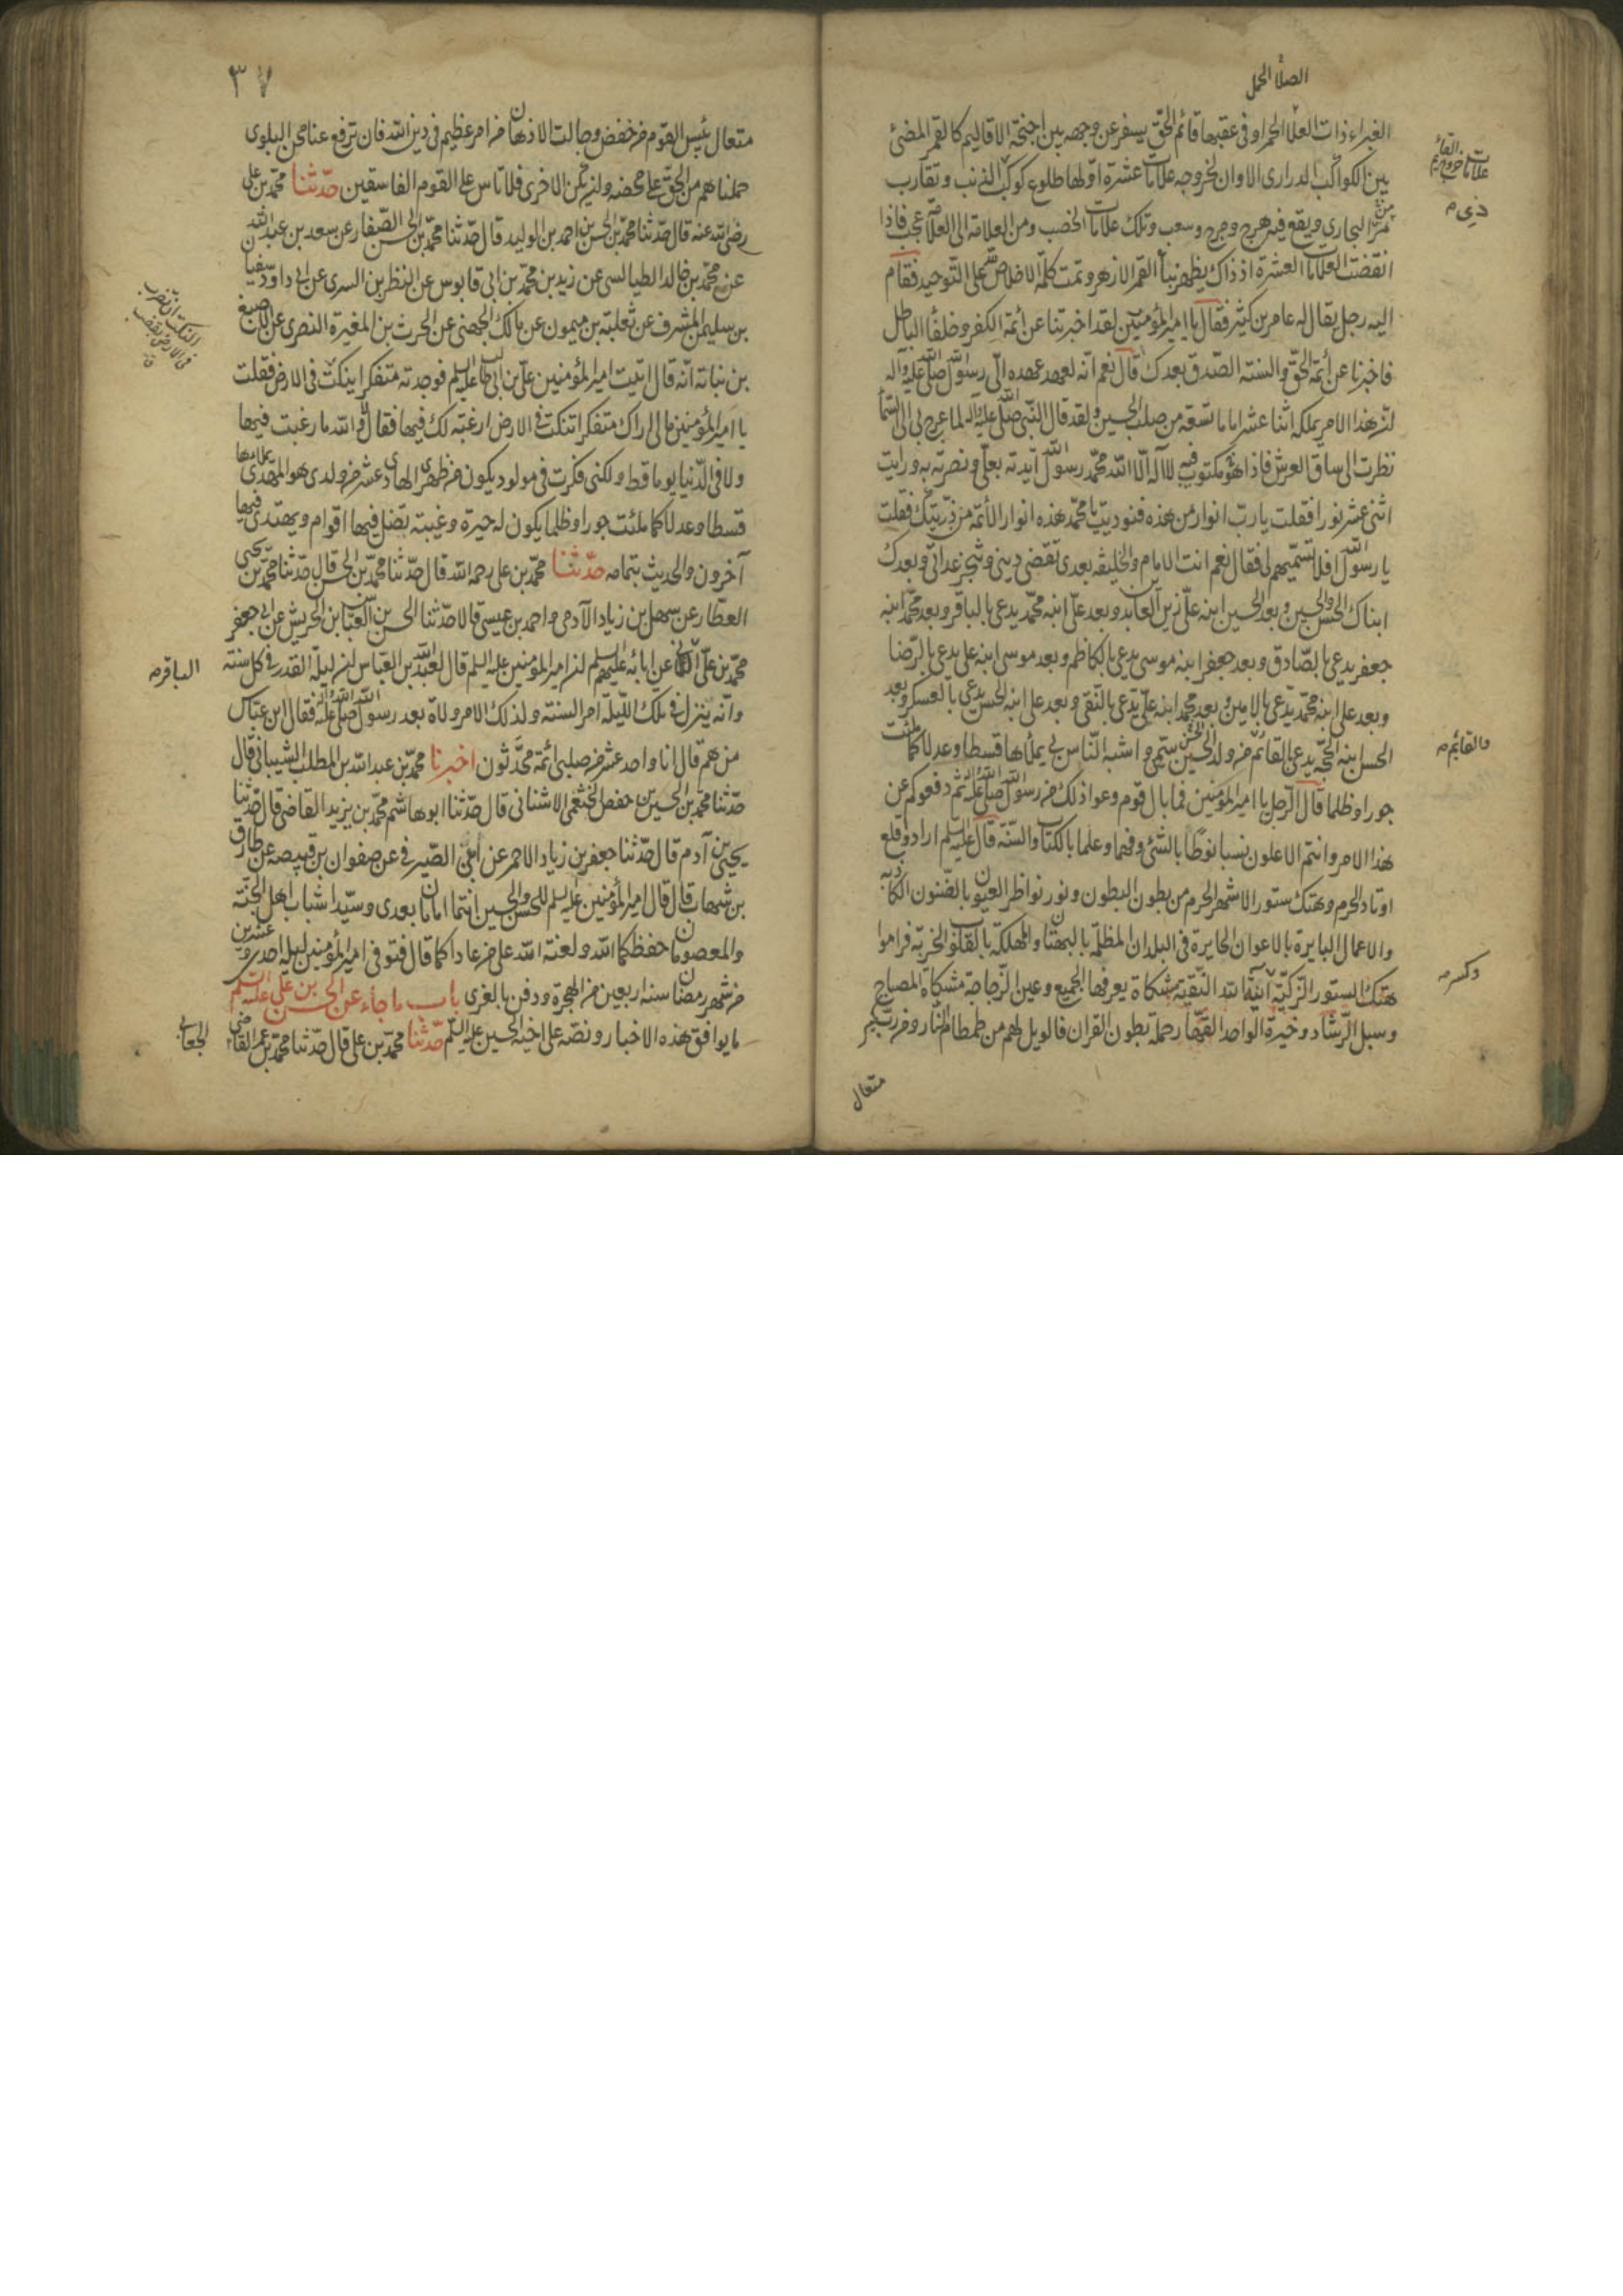 الصلا الحمل
الغبراء ذات العلا الحمراء وفى عقبها قائم الحق يسفر عن وجهه بين اجنحة الاقاليم كالقمر المضئ
بين الكواكب الدرارى الا وان لخروجه علامات عشرة اولها طلوع كوكب الذنب ويقارب
من البجارى ويقع فيه هرج ومرج وسعب وتلك علامات الخصب ومن العلامة الى العلامة عجب فاذا
انقضت العلامات العشرة اذ ذاك يظهر بنا القمر الازهر وتمت كلمة الاخلاص لله على التوحيد فقام
اليه رجل يقال له عامر بن كثير فقال يا امير المؤمنين لقد اخبرتنا عن ائمة الكفر وخلفاء الباطل
فاخبرنا عن ائمة الحق والسنة الصدق بعدك قال نعم انه لعهد عهده الى رسول الله صلى الله عليه وآله
ان هذا الامر يملكه اثنا عشر اماما تسعة من صلب الحسين ولقد قال النبى صلى الله عليه وآله لما عرج بى الى السماء
نظرت الى ساق العرش فاذا هو مكتوب فيه لا اله الا الله محمد رسول الله ايدته بعلى ونصرته به ورايت
اثنى عشر نورا فقلت يا رب انوار من هذه فنوديت يا محمد هذه انوار الأئمة من ذريتك فقلت
يا رسول الله افلا تسميهم لى فقال نعم انت الامام والخليفه بعدى تقضى دينى وتنجز عداتى وبعدك
ابناك الحسن والحسين وبعد الحسين ابنه على زين العابدين وبعد على ابنه محمد يدعى بالباقر وبعد محمد ابنه
جعفر يدعى بالصادق وبعد جعفر ابنه موسى يدعى بالكاظم وبعد موسى ابنه على يدعى بالرضا
وبعد على ابنه محمد يدعى بالامين وبعد محمد ابنه على يدعى بالنقى وبعد على ابنه الحسن يدعى بالعسكر وبعد
الحسن ابنه الحجة يدعى القائم من ولد الحسين سميى واشبه الناس بى يملأها قسطا وعدلا كما ملئت
جورا وظلما قال الرجل يا امير المؤمنين فما بال قوم وعوا ذلك من رسول الله صلى الله عليه وآله ثم دفعوكم عن
هذا الامر وانتم الاعلون نسبا نوطا بالشئ وفهما وعلما بالكتاب والسنة قال عليه السلم ارادوا قلع
اوتاد الحرم وهتك ستور الاشهر الحرم من بطون البطون ونور نواظر العيون بالظنون الكاذبه
والاعمال البايرة بالاعوان الجايرة فى البلدان المظلمة بالبهتان والمهلكة بالقلوب الخربة فراموا
هتك الستور الزكية آنية الله النقية مشكاة يعرفها الجميع وعين الزجاجة مشكاة المصباح
وسبل الرشاد وخيرة الواحد القهار حملة بطون القران فالويل لهم من طمطام النار ومن رب كبير
متعال
علامات خروج القائم
والقائم
٣٧
متعال بئس القوم من خفض وحالت الاذهان من امر عظيم فى دين الله فان ترفع عنا محن البلوى
حملناهم من الحق على محضه وان يكن الاخرى فلا تاس على القوم الفاسقين حدثنا محمد بن على
رضى الله عنه قال حدثنا محمد بن الحسن بن احمد بن الوليد قال حدثنا محمد بن الحسن الصفار عن سعد بن عبد الله
عن محمد بن خالد الطيالسى عن زيد بن محمد بن ابى قابوس عن النظر بن السرى عن ابى داود سفيان
بن سليم المشرف عن ثعلبة بن ميمون عن مالك الجهنى عن الحرث بن المغيرة النصرى عن الاصبغ
بن نباته انه قال اتيت امير المؤمنين على بن ابى طالب عليه السلم فوجدته متفكرا ينكت فى الارض فقلت
يا امير المؤمنين مالى اراك متفكرا تنكت فى الارض ارغبة لك فيها فقال لا والله ما رغبت فيها
ولا فى الدنيا يوما قط ولكنى فكرت فى مولود يكون من ظهرى الهادى عشر من ولدى هو المهدى يملأها
قسطا وعدلا كما ملئت جورا وظلما يكون له حيرة وغيبة تضل فيها اقوام ويهتدى فيها
آخرون والحديث بتمامه حدثنا محمد بن على رحمه الله قال حدثنا محمد بن الحسن قال حدثنا محمد بن يحيى
العطار عن سهل بن زياد الآدمى واحمد بن عيسى قالا حدثنا الحسن بن العباس ابن الحريش عن ابى جعفر
محمد بن على الثانى عن ابائه عليهم السلم ان امير المؤمنين عليه السلم قال لعبد الله بن العباس ان ليلة القدر فى كل سنته
وانه ينزل فى تلك الليلة امر السنته ولذلك الامر ولاة بعد رسول الله صلى الله عليه وآله فقال ابن عباس
من هم قال انا واحد عشر من صلبى ائمة محدثون اخبرنا محمد بن عبد الله بن المطلب الشيبانى قال
حدثنا محمد بن الحسين بن حفص الخثعمى الاشنانى قال حدثنا ابو هاشم محمد بن يزيد القاضى قال حدثنا
يحيى بن آدم قال حدثنا جعفر بن زياد الاحمر عن ابى الصيرفى عن صفوان بن قبيصه عن طارق
بن شهاب قال قال امير المؤمنين عليه السلم للحسن والحسين انتما امامان بعدى وسيدا شباب اهل الجنة
والمعصومان حفظكما الله ولعنة الله على من عاداكما قال فتوفى امير المؤمنين ليلة احدى وعشرين
من شهر رمضان سنه اربعين من الهجرة ودفن بالغرى باب ما جاء عن الحسن بن على عليه السلم
ما يوافق هذه الاخبار ونصه على اخيه الحسين عليه السلم حدثنا محمد بن على قال حدثنا محمد بن عمر القاضى
النكت ان تضرب
فى الارض بقضيب
الباقر
الجعابى